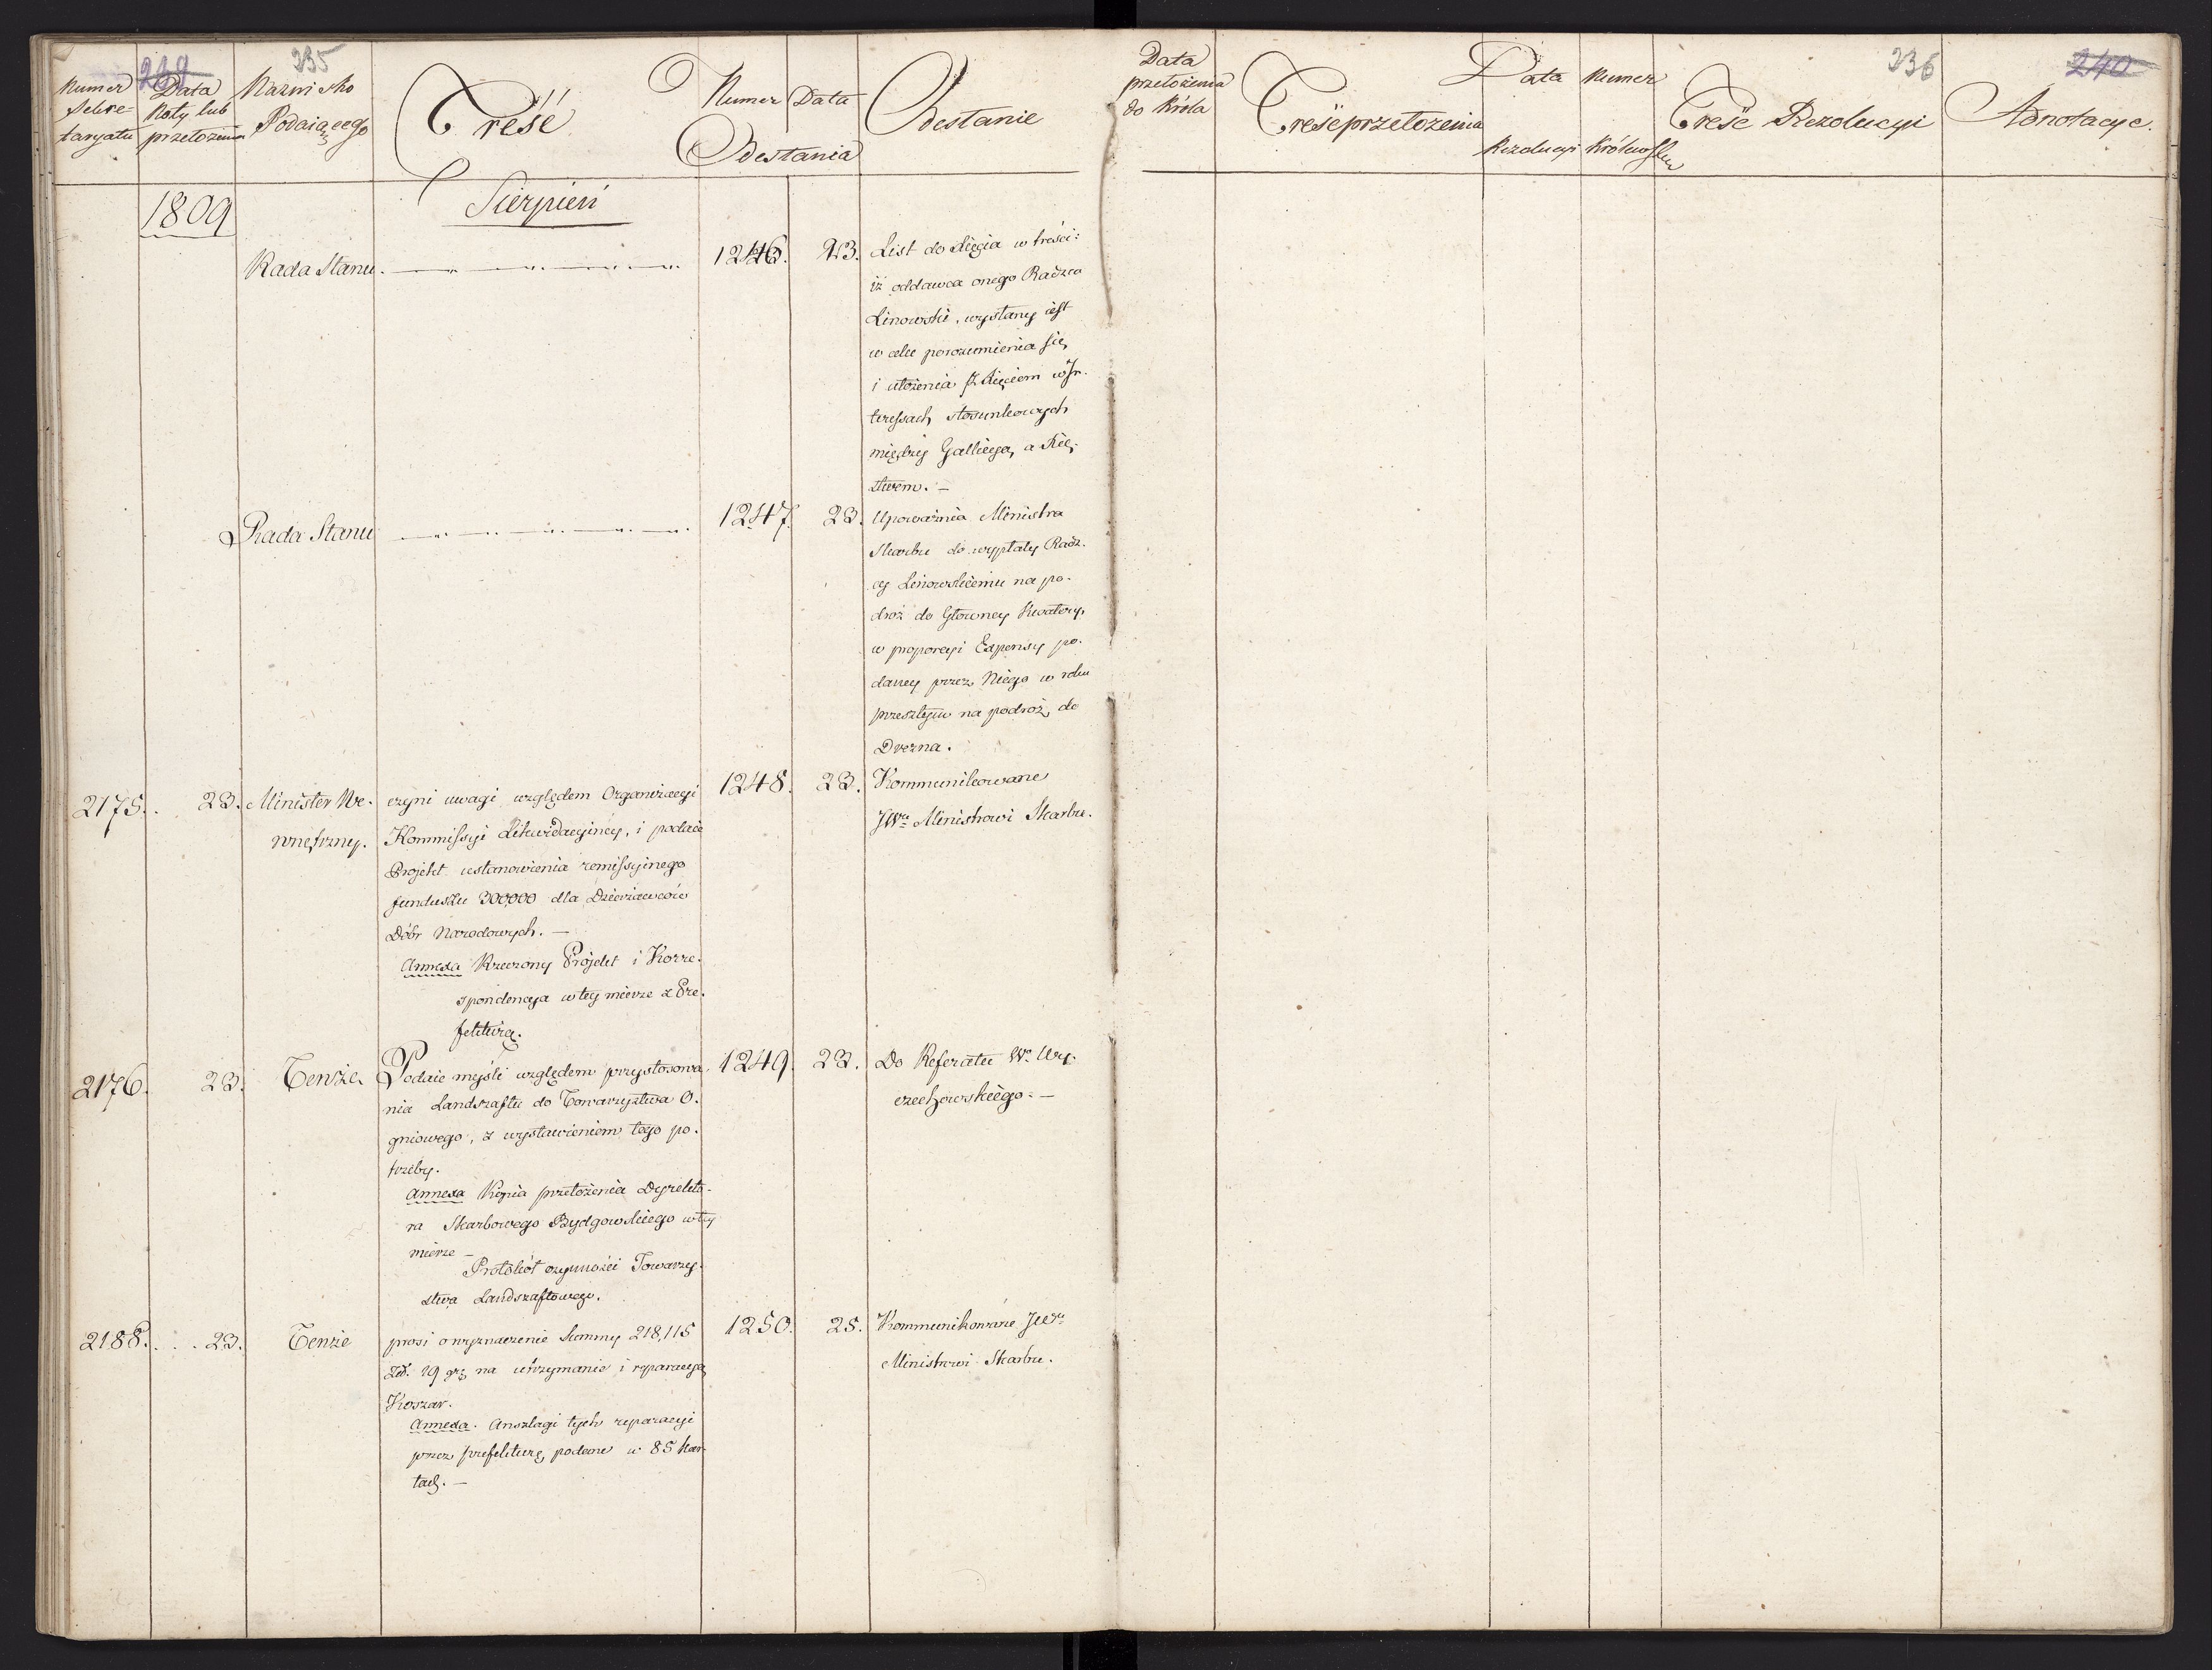 235
239
Numer Sekretaryatu
Data Noty lub przełożenia
Nazwisko Podaiącego
Treść
Numer Data
Odesłania
Odesłanie
Data przełożenia do Króla
Treść przełożenia
Data Numer
Rezolucyi Królewskiey
236
Treść Rezolucyi
240
Adnotacye.
1809
Sierpień
Rada Stanu.
1246. 23.
List do Xięcia w treści:
iż oddawca onego Radzca
Linowski, wysłany iest
w celu porozumienia się,
i ułożenia z Xięciem w In-
teressach stosunkowych
między Gallicyą, a Xię-
stwem. —
Rada Stanu
1247. 23.
Upoważnia Ministra
Skarbu do wypłaty Radz-
cy Linowskiemu na po-
droż do Głowney Kwatery,
w proporcyi Expensy po-
daney przez Niego w roku
przeszłym na podroż do
Drezna.
2175. 23. Minister We-
wnętrzny.
czyni uwagi względem Organizacyi
Kommissyi Likwidacyiney, i podaie
Projekt ustanowienia remissyinego
funduszu 300,000 dla Dzierżawców
Dóbr Narodowych. —
Annexa Rzeczony Projekt i Korre-
spondencya w tey mierze z Pre-
fekturą.
1248. 23.
Kommunikowane
JWu Ministrowi Skarbu.
2176. 23. Tenże
Podaie myśli względem przystosowa-
nia Landszaftu do Towarzystwa O-
gniowego, z wystawieniem tego po-
trzeby.
Annexa Kopia przełożenia Dyrekto-
ra Skarbowego Bydgowskiego w tey
mierze —
Protokół czynności Towarzy-
stwa Landszaftowego.
1249. 23.
Do Referatu W. Wy-
czechowskiego. —
2188. 23. Tenże
prosi o wyznaczenie Summy 218,115
Zł. 19 gr. na utrzymanie i reparacyą
Koszar.
Annexa. Anszlagi tych reparacyi
przez prefekturę podane w 85 kar-
tach. —
1250. 25.
Kommunikowane JWu
Ministrowi Skarbu.